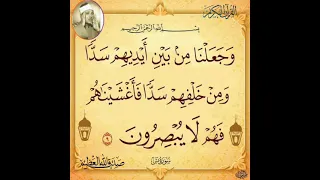 القرآن الكريم
بسم الله الرحمن الرحيم
وَجَعَلْنَا مِنْ بَيْنِ أَيْدِيهِمْ سَدًّا
وَمِنْ خَلْفِهِمْ سَدًّا فَأَغْشَيْنَاهُمْ
فَهُمْ لَا يُبْصِرُونَ ٩
صدق الله العظيم